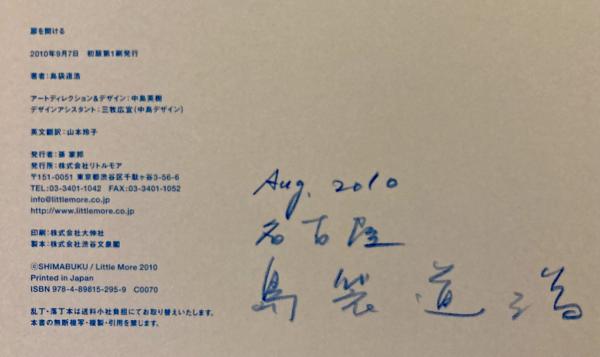 扉を開ける
2010年9月7日 初版第1刷発行
著者：島袋道浩
アートディレクション&デザイン：中島英樹
デザインアシスタント：三牧広宣(中島デザイン)
英文翻訳：山本玲子
発行者：孫家邦
発行所：株式会社リトルモア
〒151-0051 東京都渋谷区千駄ヶ谷3-56-6
TEL:03-3401-1042 FAX:03-3401-1052
info@littlemore.co.jp
http://www.littlemore.co.jp
印刷：株式会社大伸社
製本：株式会社渋谷文泉閣
©SHIMABUKU / Little More 2010
Printed in Japan
ISBN 978-4-89815-295-9 C0070
乱丁・落丁本は送料小社負担にてお取り替えいたします。
本書の無断複写・複製・引用を禁じます。
Aug. 2010
名古屋
島袋道浩